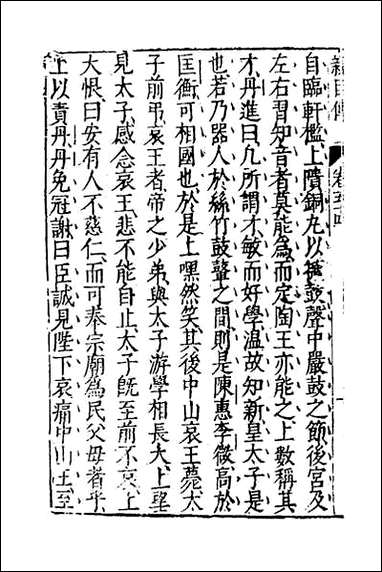 自臨軒檻上隤銅丸以擿鼓聲中嚴鼓之節後宮及
左右習知音者莫能為而定陶王亦能之上數稱其
才丹進曰凡所謂才敏而好學溫故知新皇太子是
也若乃器人於絲竹鼓鼙之間則是陳惠李微高於
匡衡可相國也於是上嘿然笑其後中山哀王薨太
子前弔哀王者帝之少弟與太子游學相長大上望
見太子感念哀王悲不能自止太子既至前不哀上
大恨曰安有人不慈仁而可奉宗廟為民父母者乎
上以責丹丹免冠謝曰臣誠見陛下哀痛中山王至